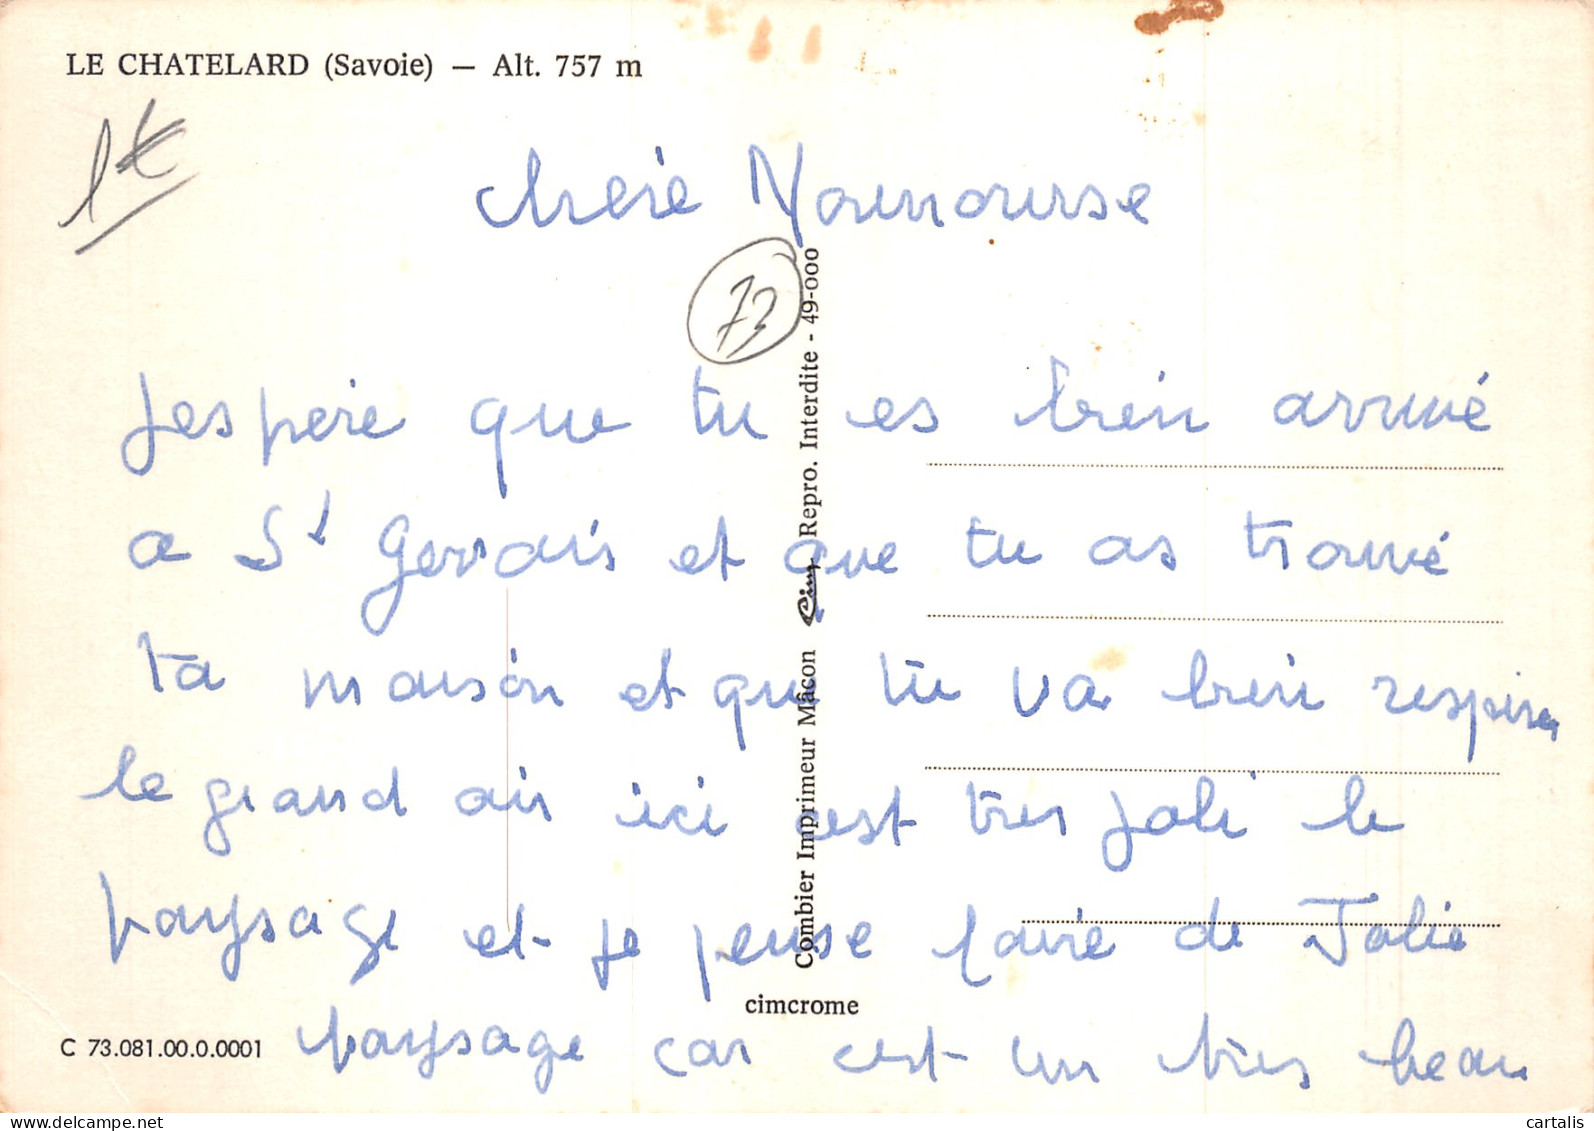 LE CHATELARD (Savoie) — Alt. 757 m
1€
chère Nounourse
73
Jespere que tu es bien arrivé
a St Gervais et que tu as trouvé
ta maison et que tu va bien respirer
le grand air ici cest tres joli le
paysage et je pense faire de Jolie
paysage car cest un tres beau
Combier Imprimeur Mâcon Cim Repro. Interdite - 49-000
cimcrome
C 73.081.00.0.0001
www.delcampe.net
cartalis